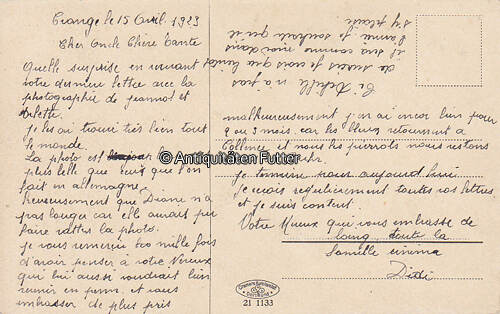 Prange le 15 Avril. 1923
Cher Oncle Chère Tante
Quelle surprise en recevant
votre dernière lettre avec la
photographie de jeannot et
Arlette
je les ai trouvé très bien tout
le monde.
La photo est
plus belle que ceux que l'on
fait en allemagne.
Heureusement que Diane n'a
pas bougée car elle aurait pu
faire rattée la photo.
je vous remercie 600 mille fois
d'avoir penser à votre Neveux
qui lui aussi voudrait bien
venir en perm. et vous
embrasser de plus près
malheureusement j'en ai encor bien pour
2 ou 3 mois. car les bleus retournent a
et nous les pierrots nous restons
je termine pour aujourd'hui.
je reçois régulièrement toutes vos lettres
et je suis content.
Votre Neveux qui vous embrasse de
loing, toute la
famille
Didi
Si Achille n'a pas
l'année je souhaite qu'il
s'y plaise
© Antiquitäten Futter
21 1133